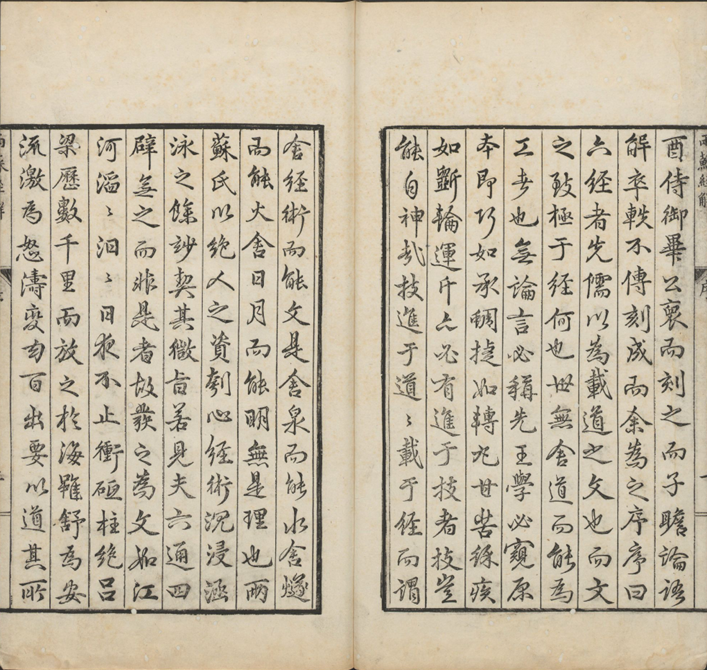 酉侍御畢公裒而刻之而子瞻論語
解卒軼不傳刻成而余為之序序曰
六經者先儒以為載道之文也而文
之致極于經何也世無舍道而能為
工者也無論言必稱先王學必窺原
本即巧如承蜩捷如轉丸甘苦疾
如斲輪運斤亦必有進于技者技豈
能自神哉技進于道道載于經而謂
舍經術而能文是舍泉而能水舍燧
而能火舍日月而能明無是理也兩
蘇氏以絕人之資刳心經術沉浸涵
泳之餘妙契其微旨若見夫六通四
辟無之而非是者故發之為文如江
河滔滔汩汩日夜不止衝砥柱絕呂
梁歷數千里而放之於海雖舒為安
流激為怒濤變幻百出要以道其所